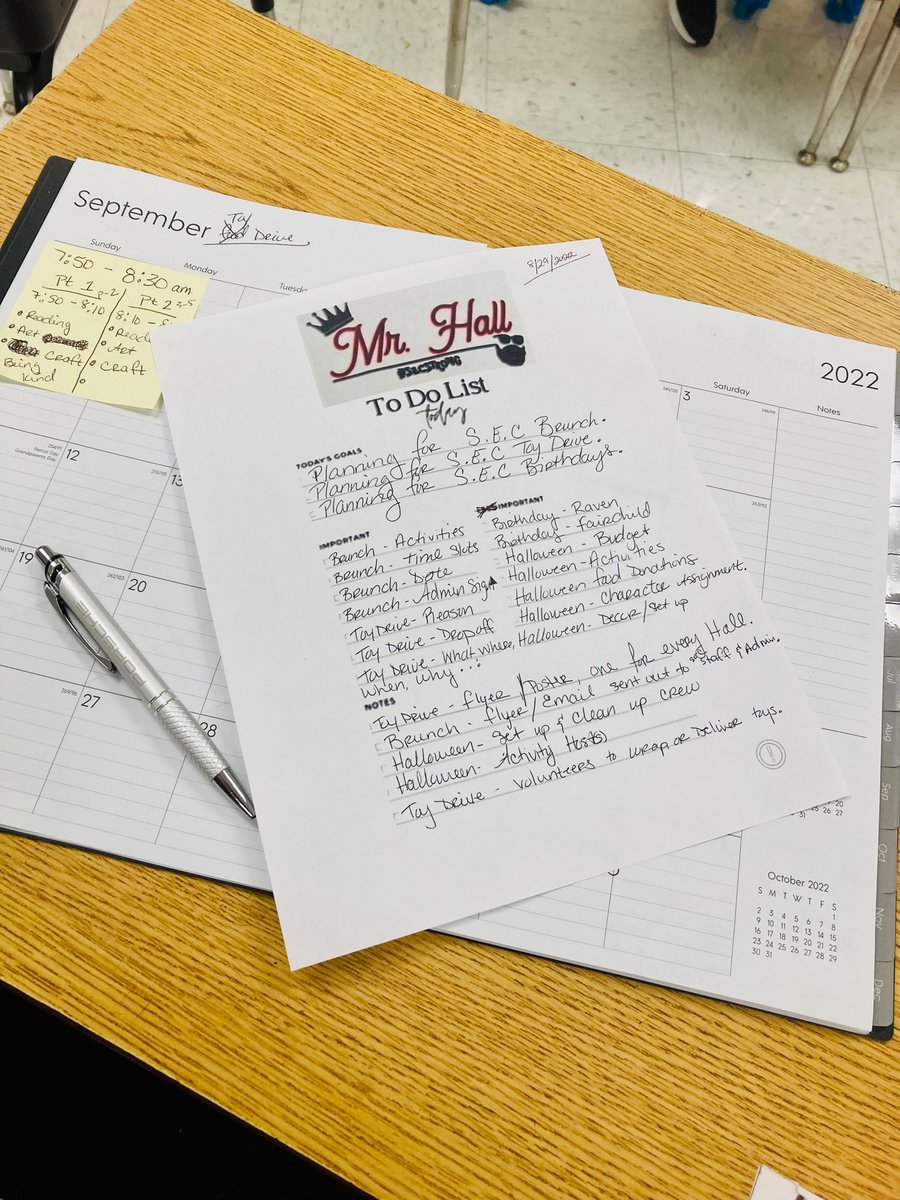 September
Toy
Drive
Sunday
Monday
Tuesday
7:50 - 8:30 am
Pt 1 p-2
Pt 2 3-5
7:50 - 8:10
8:10 - 8
• Reading
• Art
• Craft
Being
Kind
• Art
• Craft
8/29/2022
Mr. Hall
To Do List
today
TODAY'S GOALS
Planning for S.E.C Brunch.
Planning for S.E.C Toy Drive.
Planning for S.E.C Birthdays.
IMPORTANT
Brunch - Activities
Brunch - Time Slots
Brunch - Date
Brunch - Admin Sign
Toy Drive - Reason
Toy Drive - Drop off
Toy Drive - What, Where,
When, Why...!
IMPORTANT
Birthday - Raven
Birthday - Fairchild
Halloween - Budget
Halloween - Activities
Halloween Food Donations
Halloween - Character Assignment.
Halloween - Decor/Set up
NOTES
Toy Drive - Flyer / Poster, one for every Hall.
Brunch - Flyer/Email sent out to staff & Admin.
Halloween - Set up & Clean up crew
Halloween - Activity Host(s)
Toy Drive - Volunteers to wrap or Deliver toys.
Saturday
Notes
2022
3
Patriot Day
Grandparents Day
12
13
19
20
27
28
Jul
Aug
Sep
Oct
Nov
Dec
October 2022
S M T W T F S
1
2 3 4 5 6 7 8
9 10 11 12 13 14 15
16 17 18 19 20 21 22
23 24 25 26 27 28 29
30 31